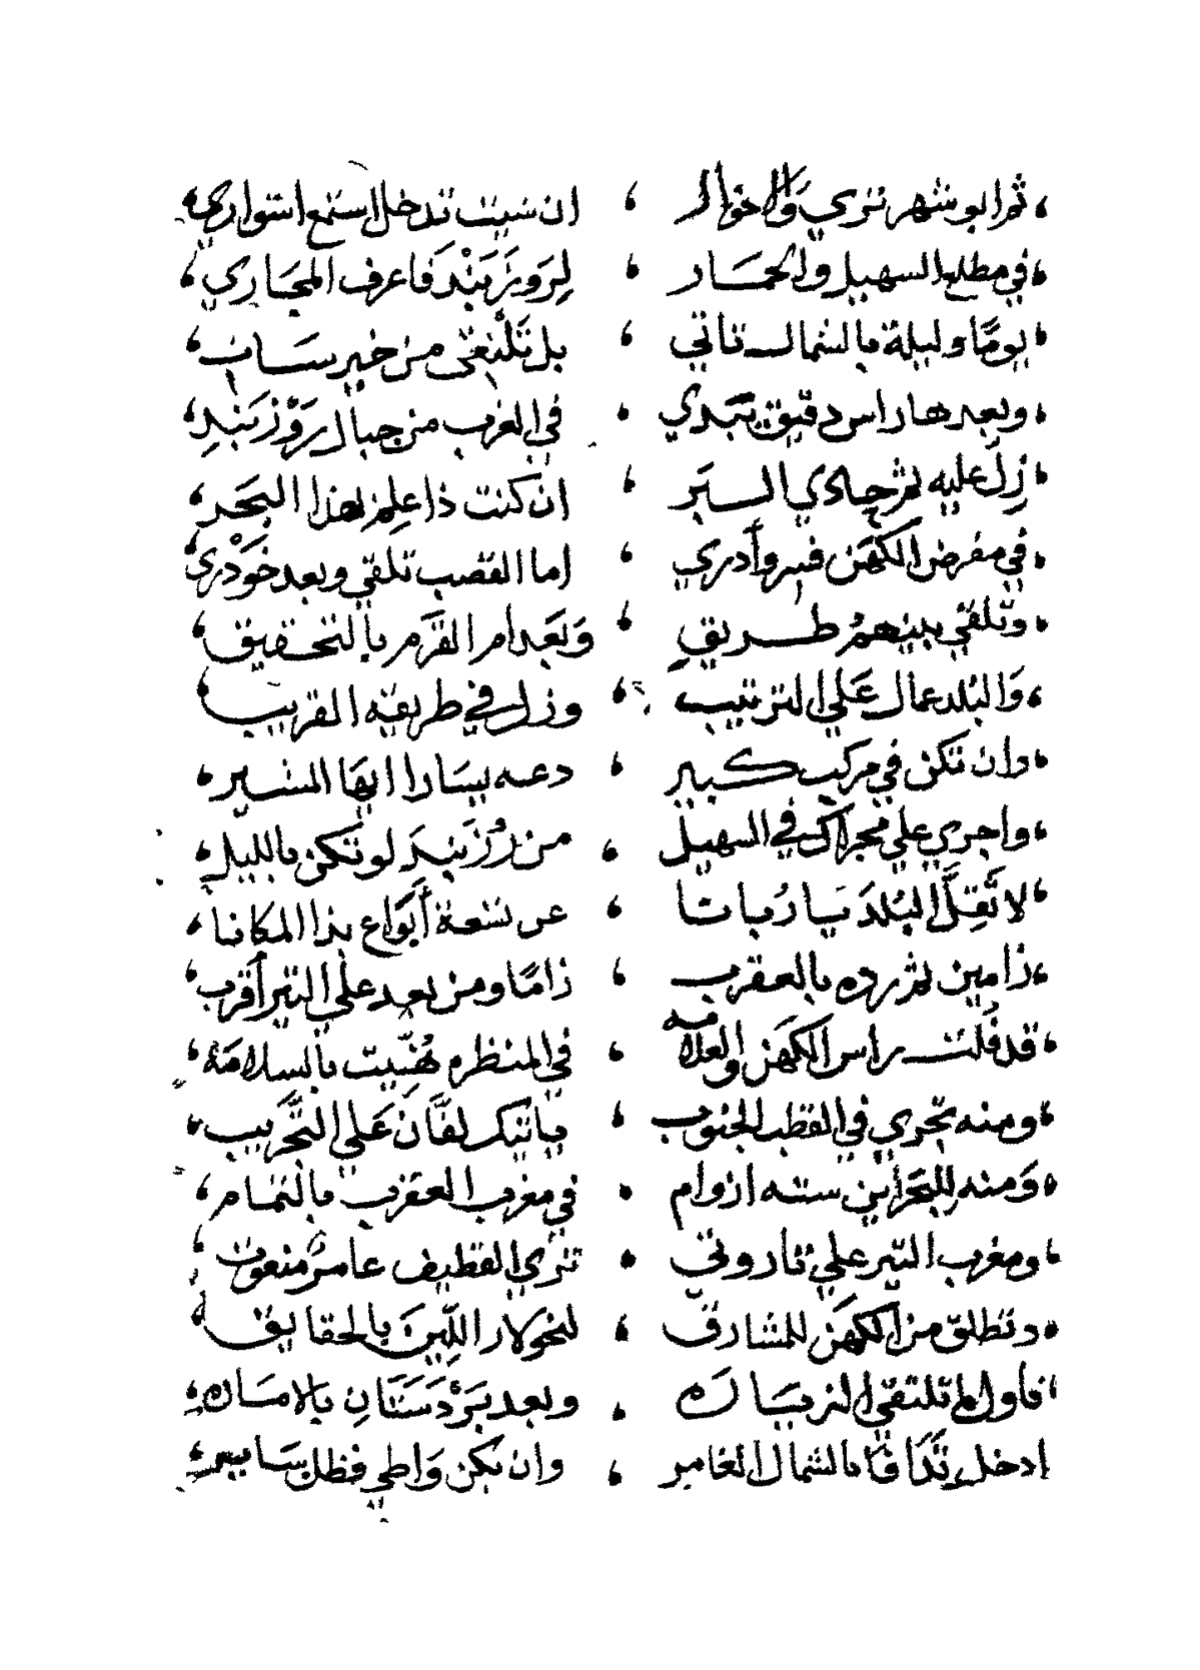 ثم ابو شهر تري والاخوار ، ان شيت تدخل استمع اشواري
في مطلع السهيل والحمار ، لروبز بند فاعرف المجاري
يومًا وليلة بالشمال تاتي ، بل تلتقى من خير
وبعدها راس دقيق تبدي ، في الغرب من جبال روز بند
زل عليه ثم جادي البر ، ان كنت ذا علم بهذا البحر
في مفرض الكهن فسر وأدري ، اما القصب تلقي وبعد خودري
وتلقي بينهم طريق ، وبعد ام القرم بالتحقيق
والبلد عمال علي الترتيب ، وزل في طريقه القريب
وان تكن في مركب كبير ، دعه يسارا ايها المشير
واجري علي مجراك في السهيل ، من روز بند لو تكن بالليل
لا تقل البلد يا ربانا ، عن تسعة أبواع بذا المكانا
زامين ثم رده بالعقرب ، زامًا ومن بعد علي التير أقرب
قد قلت راس الكهن والعلامه ، في المنظره هنيت بالسلامة
ومنه تجري في القطب الجنوب ، ياتيك لفان علي التجريب
ومنه للبحرين سته ازوام ، في مغرب العقرب بالتمام
ومغرب التير علي تاروتي ، تري القطيف عامر منعوت
وتطلق من الكهن للمشارق ، لنحو لار اللين بالحقايق
فاول ما تلتقي ، وبعد بردستان بالامان
ادخل بالشمال الغامر ، وان يكن واطي فظل ساير